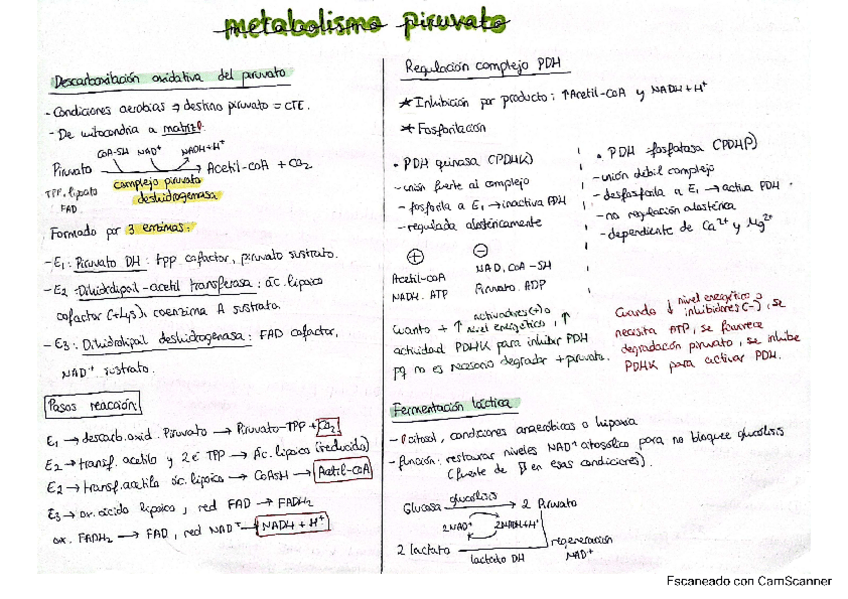 metabolismo piruvato
Descarboxilación oxidativa del piruvato
- Condiciones aerobias → destino piruvato = CTE.
- De mitocondria a matriz.
CoA-SH NAD⁺ NADH+H⁺
Piruvato → Acetil-CoA + CO₂
TPP, lipoato
FAD
complejo piruvato
deshidrogenasa
Formado por 3 enzimas:
- E₁: Piruvato DH: tpp cofactor, piruvato sustrato.
- E₂: Dihidrolipoil-acetil transferasa: ác. lipoico
cofactor (+Lys), coenzima A sustrato.
- E₃: Dihidrolipoil deshidrogenasa: FAD cofactor,
NAD⁺ sustrato.
Pasos reacción:
E₁ → descarb. oxid. Piruvato → Piruvato-TPP + CO₂
E₂ → transf. acetilo y 2e⁻ TPP → ác. lipoico (reducido)
E₂ → transf. acetilo ác. lipoico → CoASH → Acetil-CoA
E₃ → ox. ácido lipoico, red FAD → FADH₂
ox. FADH₂ → FAD, red NAD⁺ → NADH + H⁺
Regulación complejo PDH
* Inhibición por producto: ↑Acetil-CoA y NADH+H⁺
* Fosforilación
• PDH quinasa (PDHK)
- unión fuerte al complejo
- fosforila a E₁ → inactiva PDH
- regulada alostéricamente
⊕ ⊖
Acetil-CoA NAD, CoA-SH
NADH, ATP Piruvato, ADP
• PDH fosfatasa (PDHP)
- unión débil complejo
- desfosforila a E₁ → activa PDH
- no regulación alostérica
- dependiente de Ca²⁺ y Mg²⁺
activadores (+) o
Cuanto + ↑ nivel energético, ↑
actividad PDHK para inhibir PDH
pq no es necesario degradar + piruvato.
nivel energético o
Cuando ↓ inhibidores (-), se
necesita ATP, se favorece
degradación piruvato, se inhibe
PDHK para activar PDH.
Fermentación láctica
- Citosol, condiciones anaeróbicas o hipoxia
- función: restaurar niveles NAD⁺ citosólico para no bloquee glucolisis
(fuente de E en esas condiciones).
Glucosa glucolisis → 2 Piruvato
2NAD⁺ 2NADH+H⁺
2 lactato
lactato DH
regeneración
NAD⁺
Escaneado con CamScanner